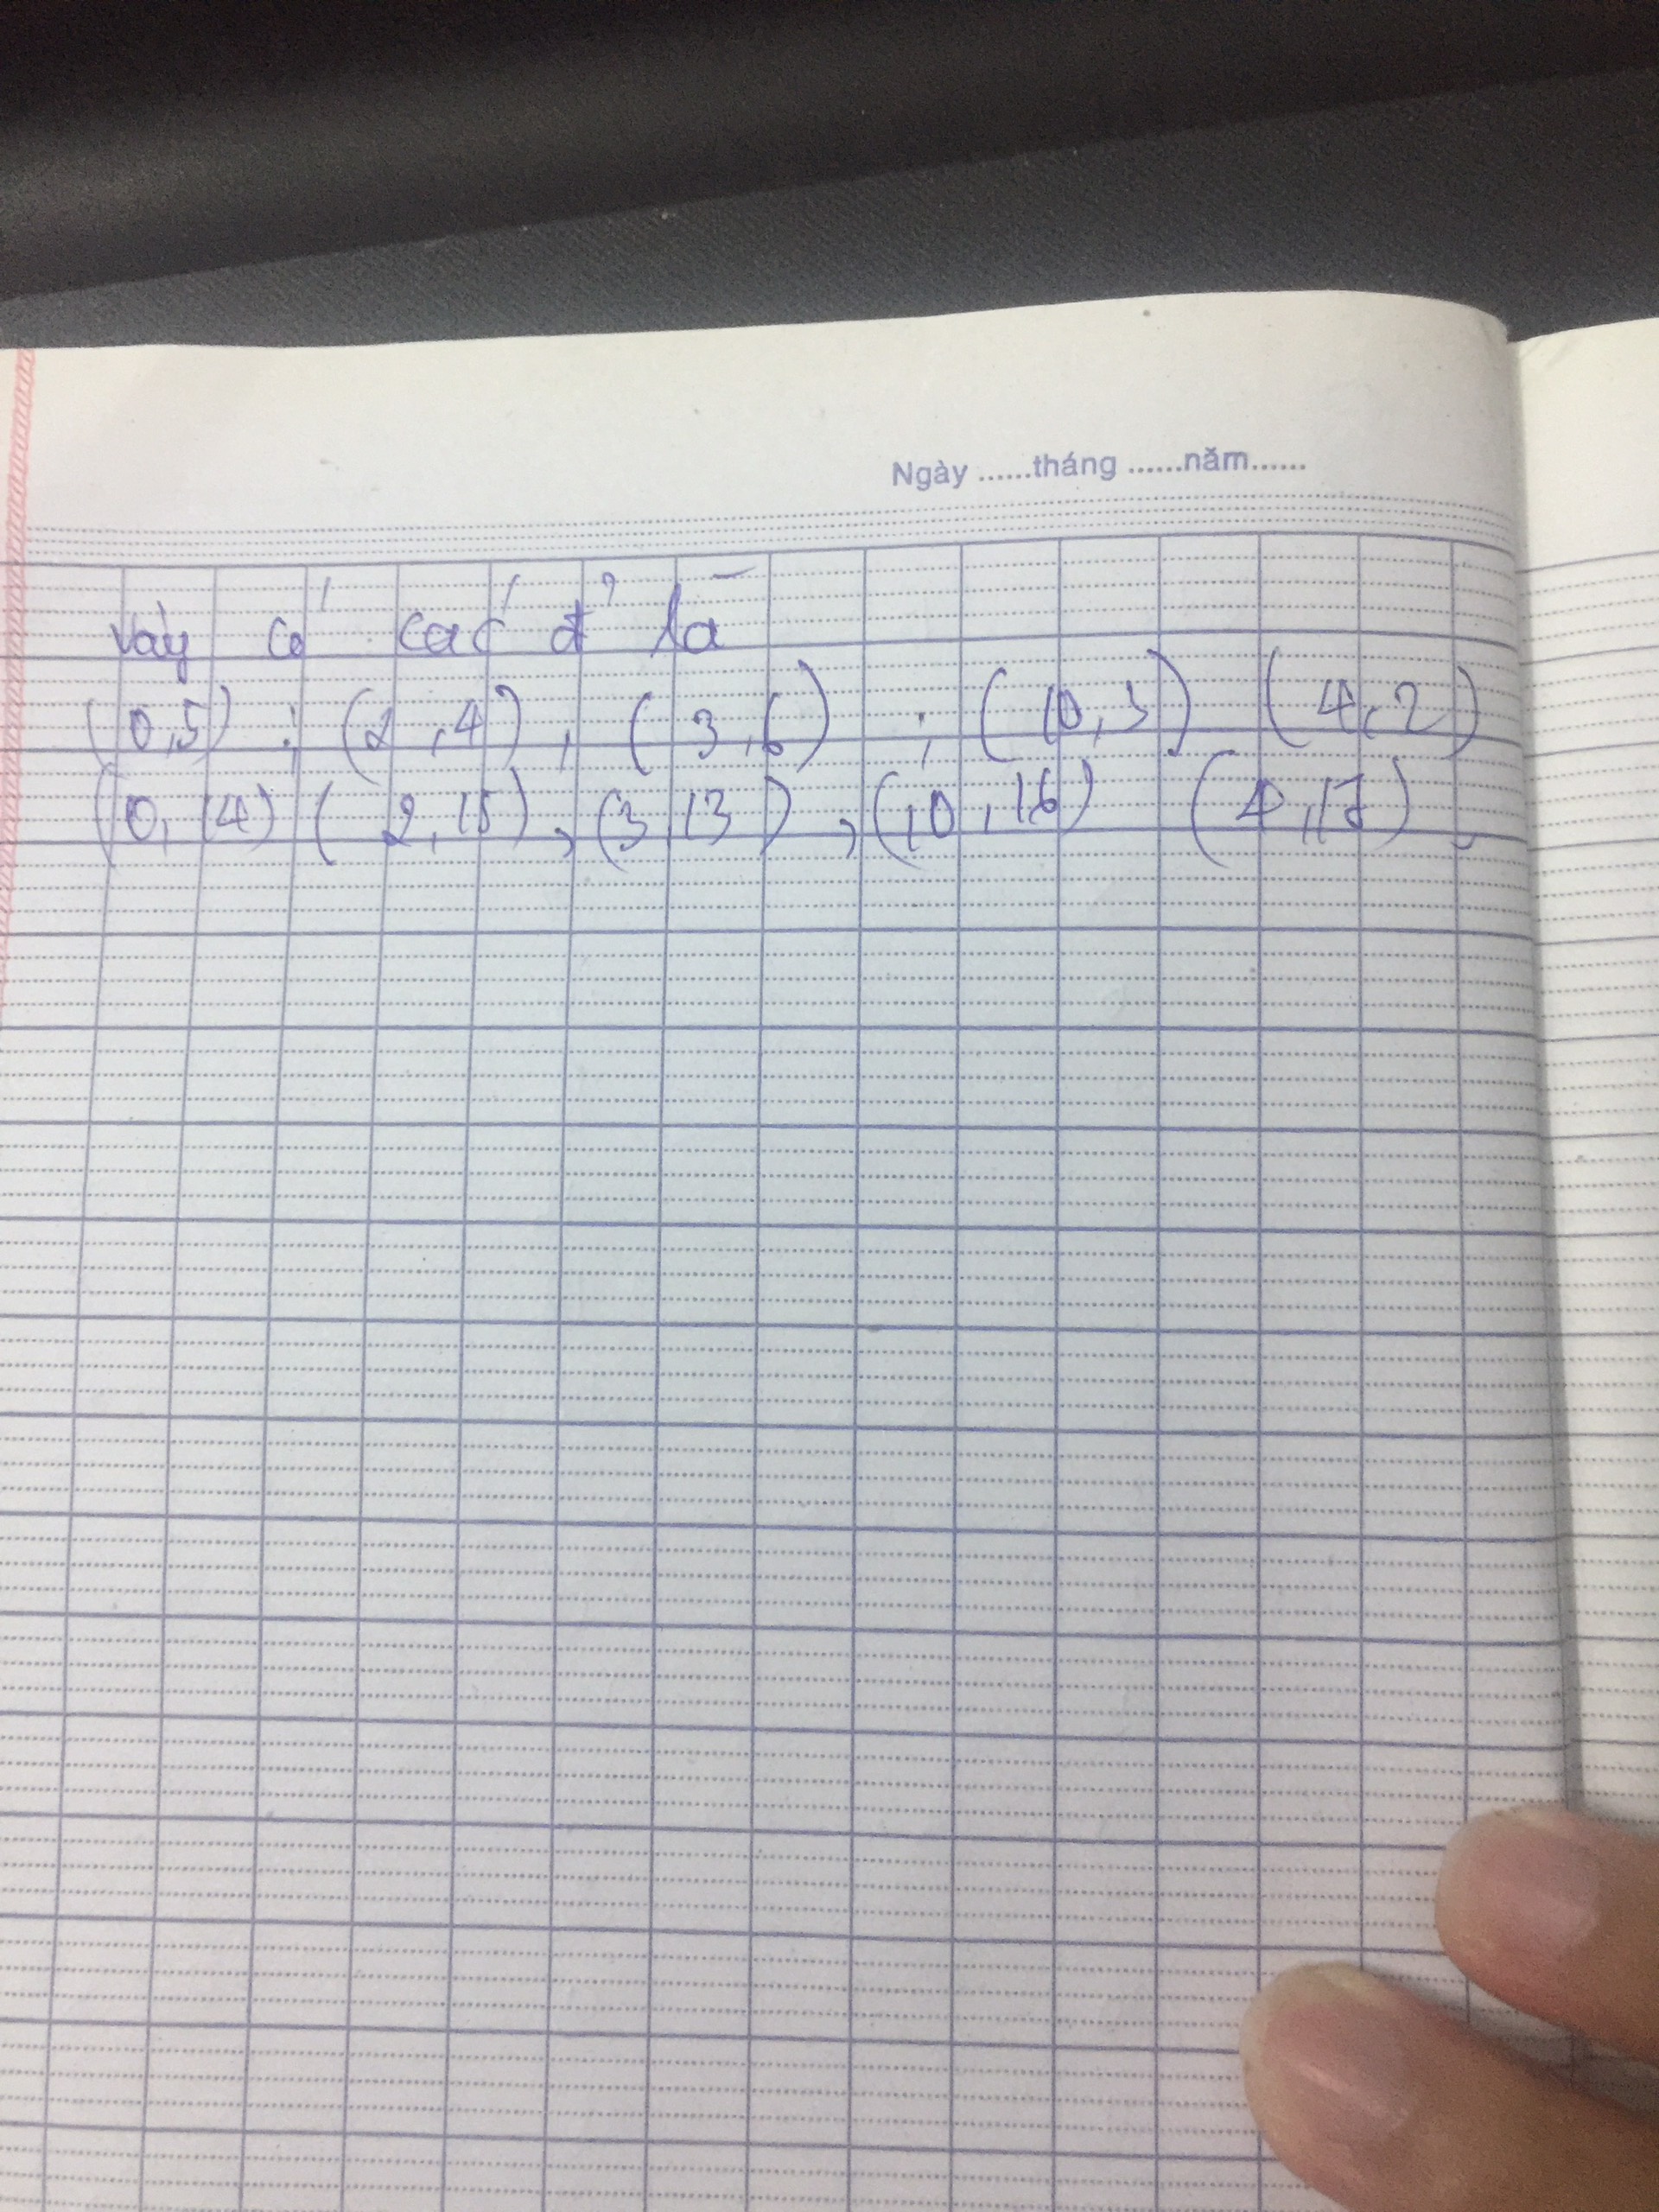 Ngày ......tháng ......năm......
Vậy có các đ' là
(0,5) ; (2,4), (3,6) ; (10,3) (4,2)
(0,14) (2,15), (3,13), (10,16) (4,17)